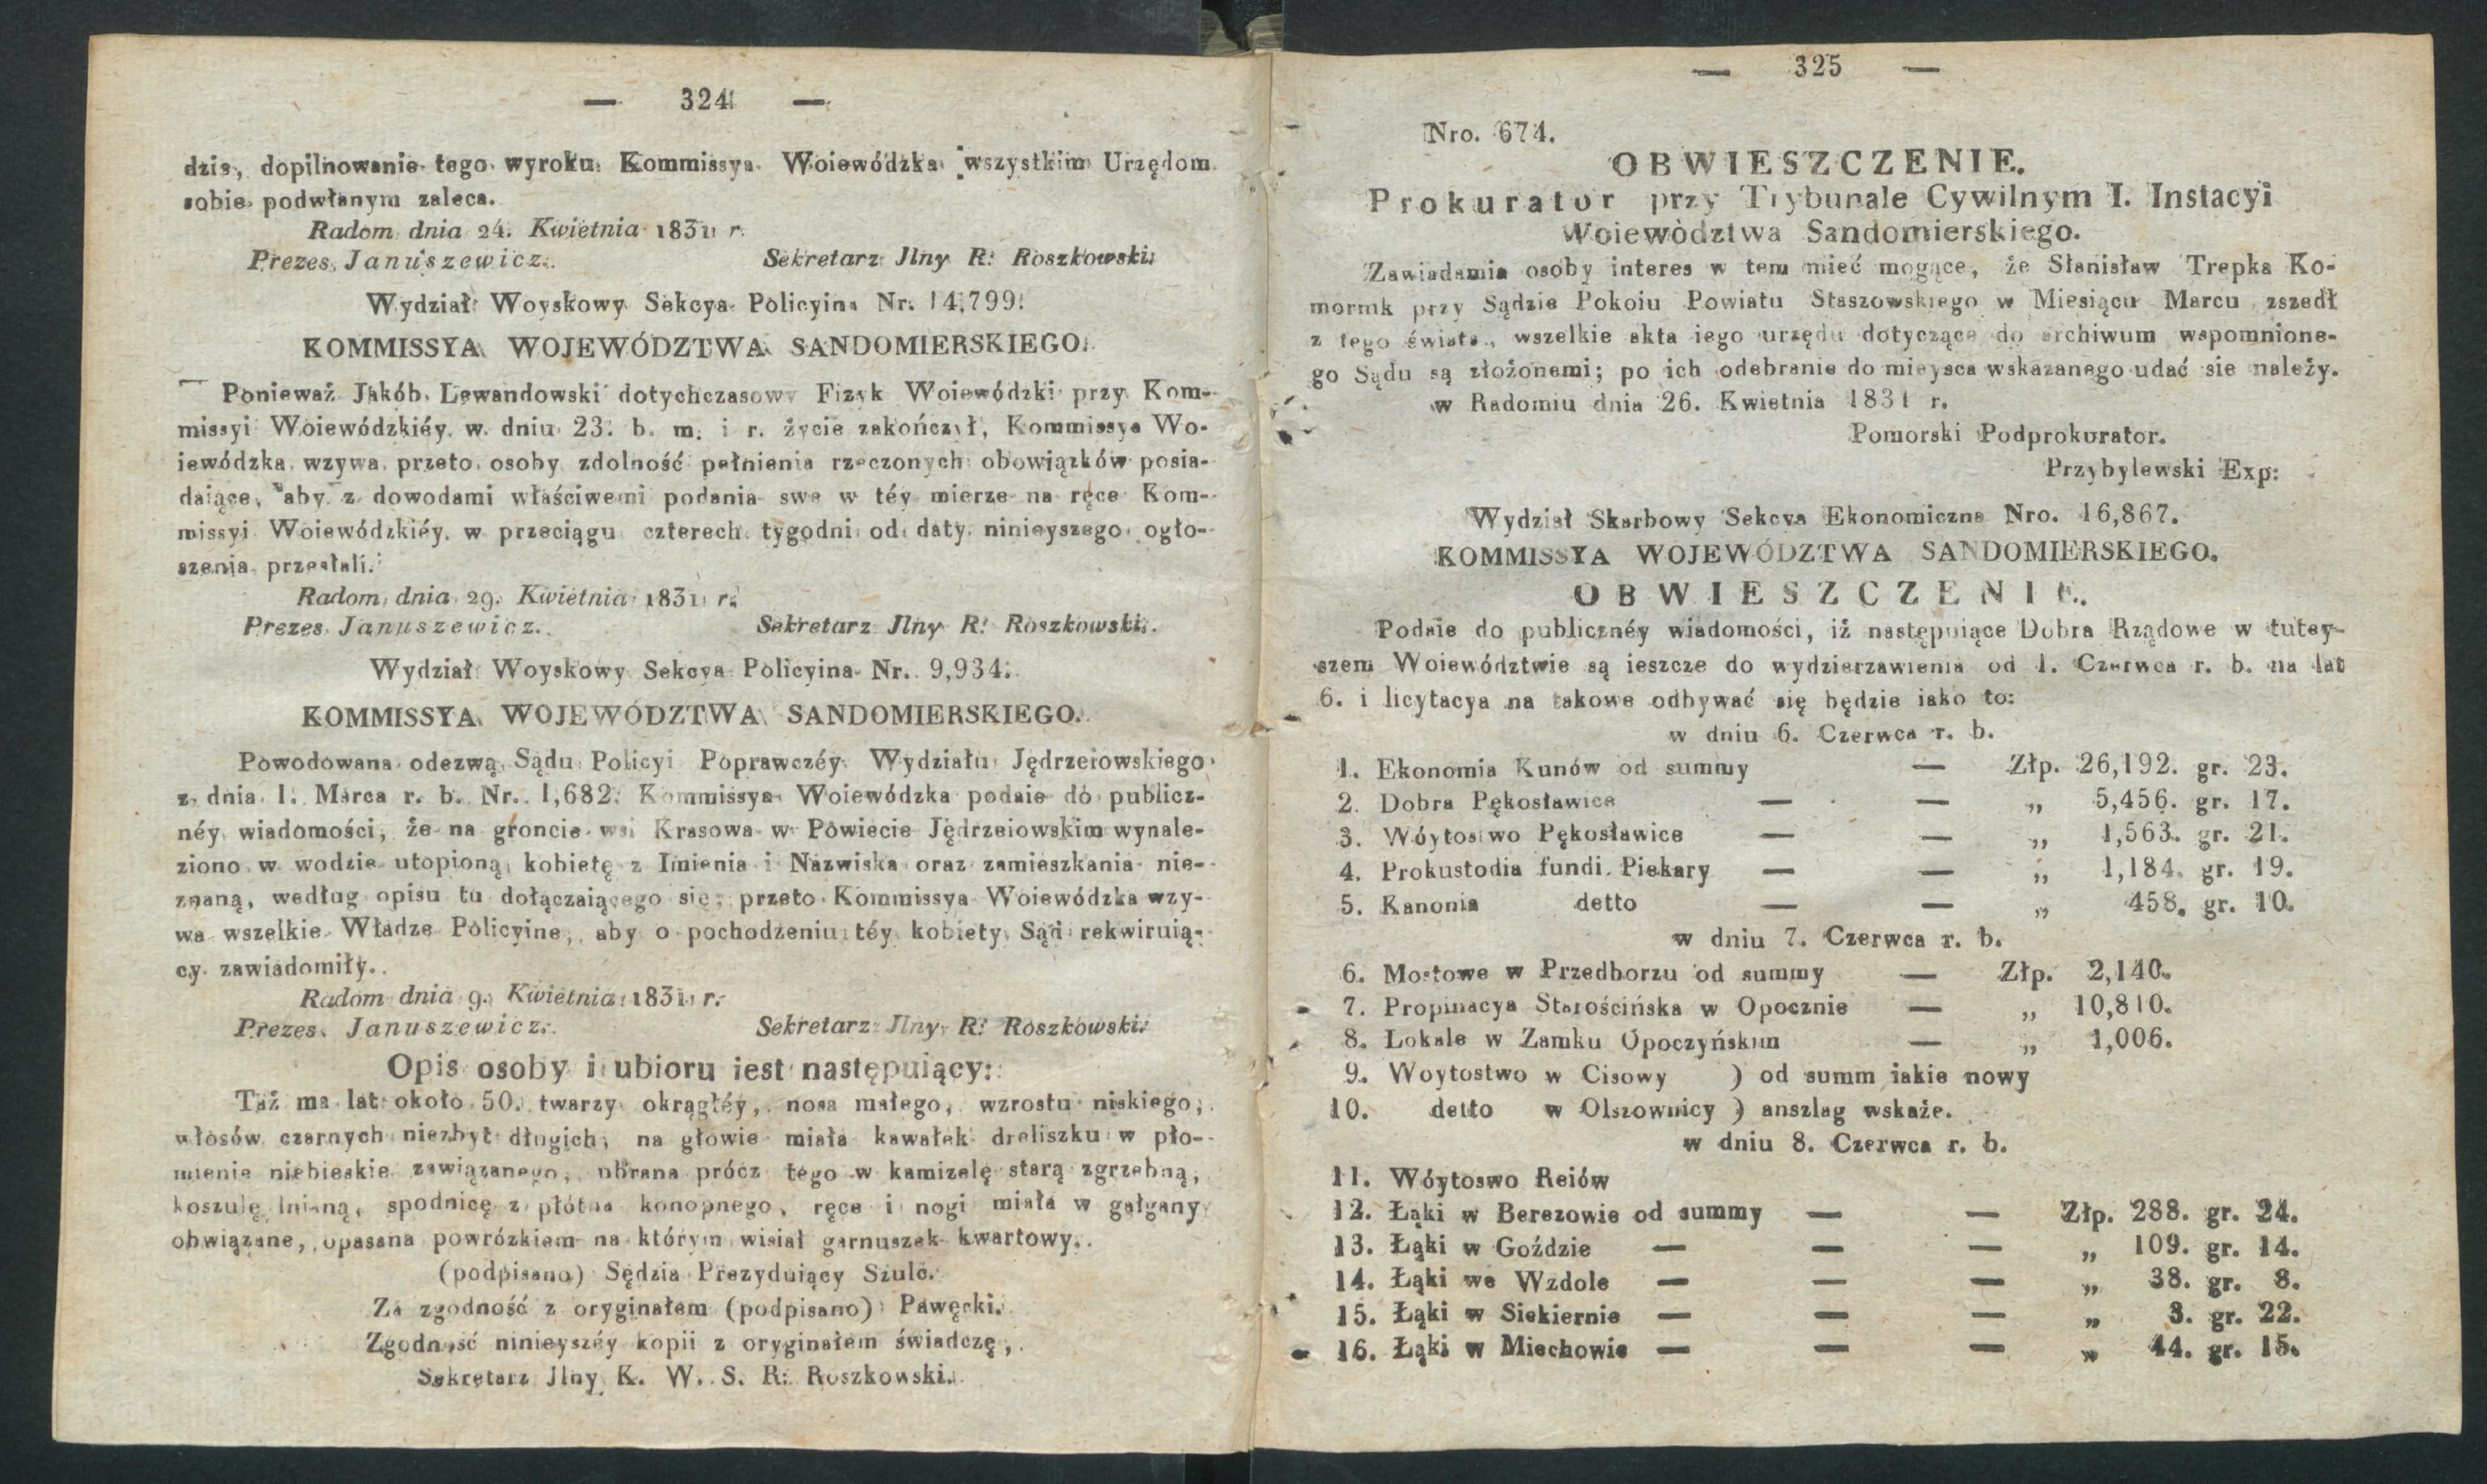 — 324 —
dzie, dopilnowanie tego wyroku Kommissya Woiewódzka wszystkim Urzędom
sobie podwłanym zaleca.
Radom dnia 24. Kwietnia 1831 r.
Prezes Januszewicz. Sekretarz Jlny R: Roszkowski
Wydział Woyskowy Sekcya Policyina Nr. 14,799.
KOMMISSYA WOJEWÓDZTWA SANDOMIERSKIEGO.
Ponieważ Jakób Lewandowski dotychczasowy Fizyk Woiewódzki przy Kom-
missyi Woiewódzkiéy w dniu 23. b. m. i r. życie zakończył, Kommissya Wo-
iewódzka wzywa przeto osoby zdolność pełnienia rzeczonych obowiązków posia-
daiące, aby z dowodami właściwemi podania swe w téy mierze na ręce Kom-
missyi Woiewódzkiéy w przeciągu czterech tygodni od daty ninieyszego ogło-
szenia przesłali.
Radom dnia 29. Kwietnia 1831 r.
Prezes Januszewicz. Sekretarz Jlny R: Roszkowski.
Wydział Woyskowy Sekcya Policyina Nr. 9,934.
KOMMISSYA WOJEWÓDZTWA SANDOMIERSKIEGO.
Powodowana odezwą Sądu Policyi Poprawczéy Wydziału Jędrzeiowskiego
z dnia 1. Marca r. b. Nr. 1,682. Kommissya Woiewódzka podaie do publicz-
néy wiadomości, że na groncie wsi Krasowa w Powiecie Jędrzeiowskim wynale-
ziono w wodzie utopioną kobietę z Imienia i Nazwiska oraz zamieszkania nie-
znaną, według opisu tu dołączaiącego się; przeto Kommissya Woiewódzka wzy-
wa wszelkie Władze Policyine, aby o pochodzeniu téy kobiety Sąd rekwiruią-
cy zawiadomiły.
Radom dnia 9. Kwietnia 1831 r.
Prezes Januszewicz. Sekretarz Jlny R: Roszkowski.
Opis osoby i ubioru iest następuiący:
Taż ma lat około 50. twarzy okrągłéy, nosa małego, wzrostu niskiego,
włosów czarnych niezbyt długich, na głowie miała kawałek dreliszku w pło-
mienie niebieskie zawiązanego, ubrana prócz tego w kamizelę starą zgrzebną,
koszulę lnianą, spodnicę z płótna konopnego, ręce i nogi miała w gałgany
obwiązane, opasana powrózkiem na którym wisiał garnuszek kwartowy.
(podpisano) Sędzia Prezyduiący Szulc.
Za zgodność z oryginałem (podpisano) Pawęcki.
Zgodność ninieyszéy kopii z oryginałem świadczę,
Sekretarz Jlny K. W. S. R: Roszkowski.
— 325 —
Nro. 674.
OBWIESZCZENIE.
Prokurator przy Trybunale Cywilnym I. Instacyi
Woiewòdztwa Sandomierskiego.
Zawiadamia osoby interes w tem mieć mogące, że Stanisław Trepka Ko-
mornik przy Sądzie Pokoiu Powiatu Staszowskiego w Miesiącu Marcu zszedł
z tego świata, wszelkie akta iego urzędu dotyczące do archiwum wspomnione-
go Sądu są złożonemi; po ich odebranie do mieysca wskazanego udać sie należy.
w Radomiu dnia 26. Kwietnia 1831 r.
Pomorski Podprokurator.
Przybylewski Exp:
Wydział Skarbowy Sekcya Ekonomiczna Nro. 16,867.
KOMMISSYA WOJEWÓDZTWA SANDOMIERSKIEGO.
OBWIESZCZENIE.
Podaie do publicznéy wiadomości, iż następuiące Dobra Rządowe w tutey-
szem Woiewództwie są ieszcze do wydzierzawienia od 1. Czerwca r. b. na lat
6. i licytacya na takowe odbywać się będzie iako to:
w dniu 6. Czerwca r. b.
1. Ekonomia Kunów od summy — Złp. 26,192. gr. 23.
2. Dobra Pękosławice — — „ 5,456. gr. 17.
3. Wóytostwo Pękosławice — — „ 1,563. gr. 21.
4. Prokustodia fundi Piekary — — „ 1,184. gr. 19.
5. Kanonia detto — — „ 458. gr. 10.
w dniu 7. Czerwca r. b.
6. Mostowe w Przedborzu od summy — Złp. 2,140.
7. Propinacya Starościńska w Opocznie — „ 10,810.
8. Lokale w Zamku Opoczyńskim — „ 1,006.
9. Woytostwo w Cisowy ) od summ iakie nowy
10. detto w Olszownicy ) anszlag wskaże.
w dniu 8. Czerwca r. b.
11. Wóytoswo Reiów
12. Łąki w Berezowie od summy — — Złp. 288. gr. 24.
13. Łąki w Goździe — — — „ 109. gr. 14.
14. Łąki we Wzdole — — — „ 38. gr. 8.
15. Łąki w Siekiernie — — — „ 3. gr. 22.
16. Łąki w Miechowie — — — „ 44. gr. 15.